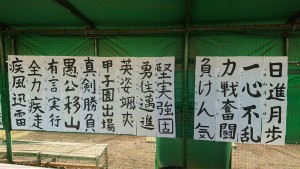 日進月歩
一心不乱
力戦奮闘
負けん気
堅実強固
勇往邁進
英姿颯爽
甲子園出場
真剣勝負
愚公移山
有言実行
全力疾走
疾風迅雷